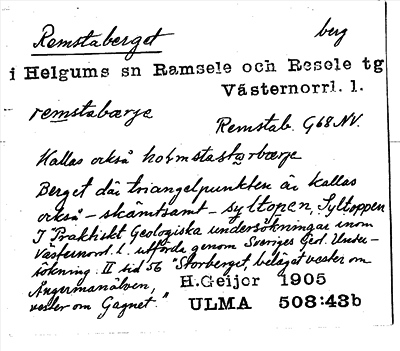 Remstaberget berg
i Helgums sn Ramsele och Resele tg
Västernorrl. l.
remstabærje
Remstab. G68NV.
Kallas också holmstastorbærje
Berget där triangelpunkten är kallas
också – skämtsamt – syltopen, Syltoppen
I "Praktiskt Geologiska undersökningar inom
Västernorrl. l. utförda genom Sveriges Geol. Under-
sökning. II sid 56 "Storberget, beläget väster om
Ångermanälven,
väster om Gagnet."
H.Geijer 1905
ULMA 508:43b